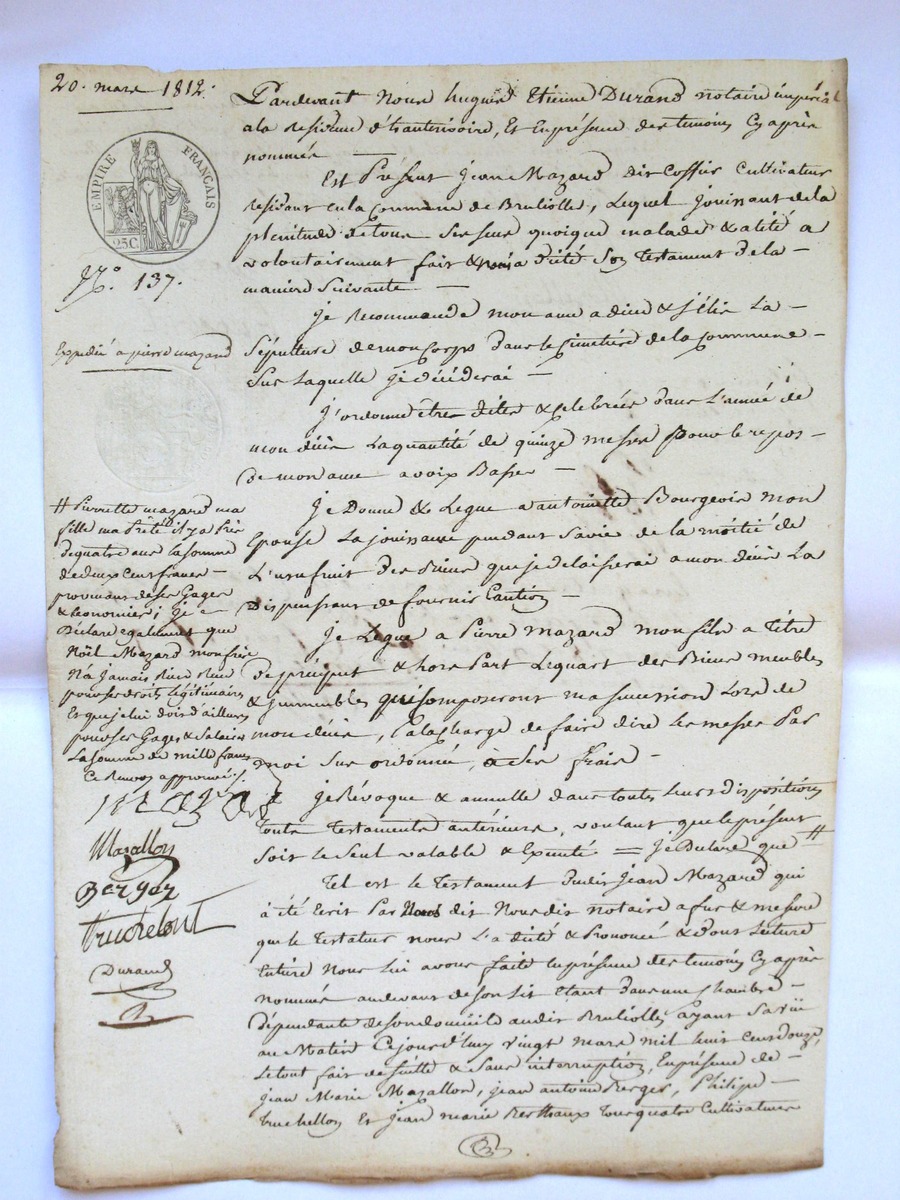 20. mars 1812.
EMPIRE FRANÇAIS
25 C.
N.° 137.
Expedié a pierre mazard
Pardevant Nous hugues Etienne Durand notaire imperial
ala Residence d'hauterivoire, Et En présence des temoins Cy après
nommés —
Est Présent Jean Mazard dit Coffier Cultivateur
Residant en la Commune de Bruliolle, Lequel Jouissant de la
plenitude de tous ses sens quoique malade & alité a
volontairement fait & nous a dicté Son Testament de la
maniere Suivante —
je Recommande mon ame a dieu & j'Elis La
Sépulture de mon Corps dans le Cimetiere de la Commune
Sur Laquelle je décéderai —
J'ordonne être dites & Celebrées dans L'année de
mon décès La quantité de quinze messes Pour le repos
de mon ame a voix Basse —
Je Donne & Legue a antoinette Bourgeois mon
Epouse La jouissance pendant Sa vie de la moitié de
L'usufruit des Biens que je delaisserai a mon décès La
Dispensant de fournir Caution —
Je Legue a Pierre Mazard mon fils a Titre
de préciput & hors Part Le quart des Biens meubles
& immeubles qui Composeront ma succession Lors de
mon décès, a la Charge de faire dire les messes Par
moi Sus ordonnés, à Ses frais —
Je Révoque & annulle dans toutes leurs dispositions
Touts Testaments antérieurs, voulant que le présent
Soit le Seul valable & Executé = je Déclare que #
# Pierrette mazard ma
fille m'a Prêté il y a Près
de quatre ans la somme
de deux Cens francs —
provenans de ses Gages
& Economies; je
Déclare egalement que
Noël Mazard mon frère
N'a Jamais Rien Reçu
pour ses droits Légitimaires
Et que je lui dois d'ailleurs
pour ses Gages & Salaires
La somme de mille francs
Ce Renvoy approuvé ./.
Mazallon
Berger
truchelont
Durand
Tel est le Testament dudit Jean Mazard qui
à été Ecrit Par Nous dit Nousdit notaire a fur & mesure
que le Testateur nous L'a dicté & Prononcé & dont Lecture
Entiere Nous Lui avons faite En présence des temoins Cy après
nommés au devant de son Lit Etant dans une Chambre
Dépendante de son domicile audit Brulliolles ayant Sa vüe
au Matin Ce jourd'huy vingt mars mil huit Cens douze,
Le tout fait de Suitte & Sans interruption, En présence de —
Jean Marie Mazallon, jean antoine Berger, Philipe
truchellon Et jean marie Berthaux Tous quatre Cultivateurs